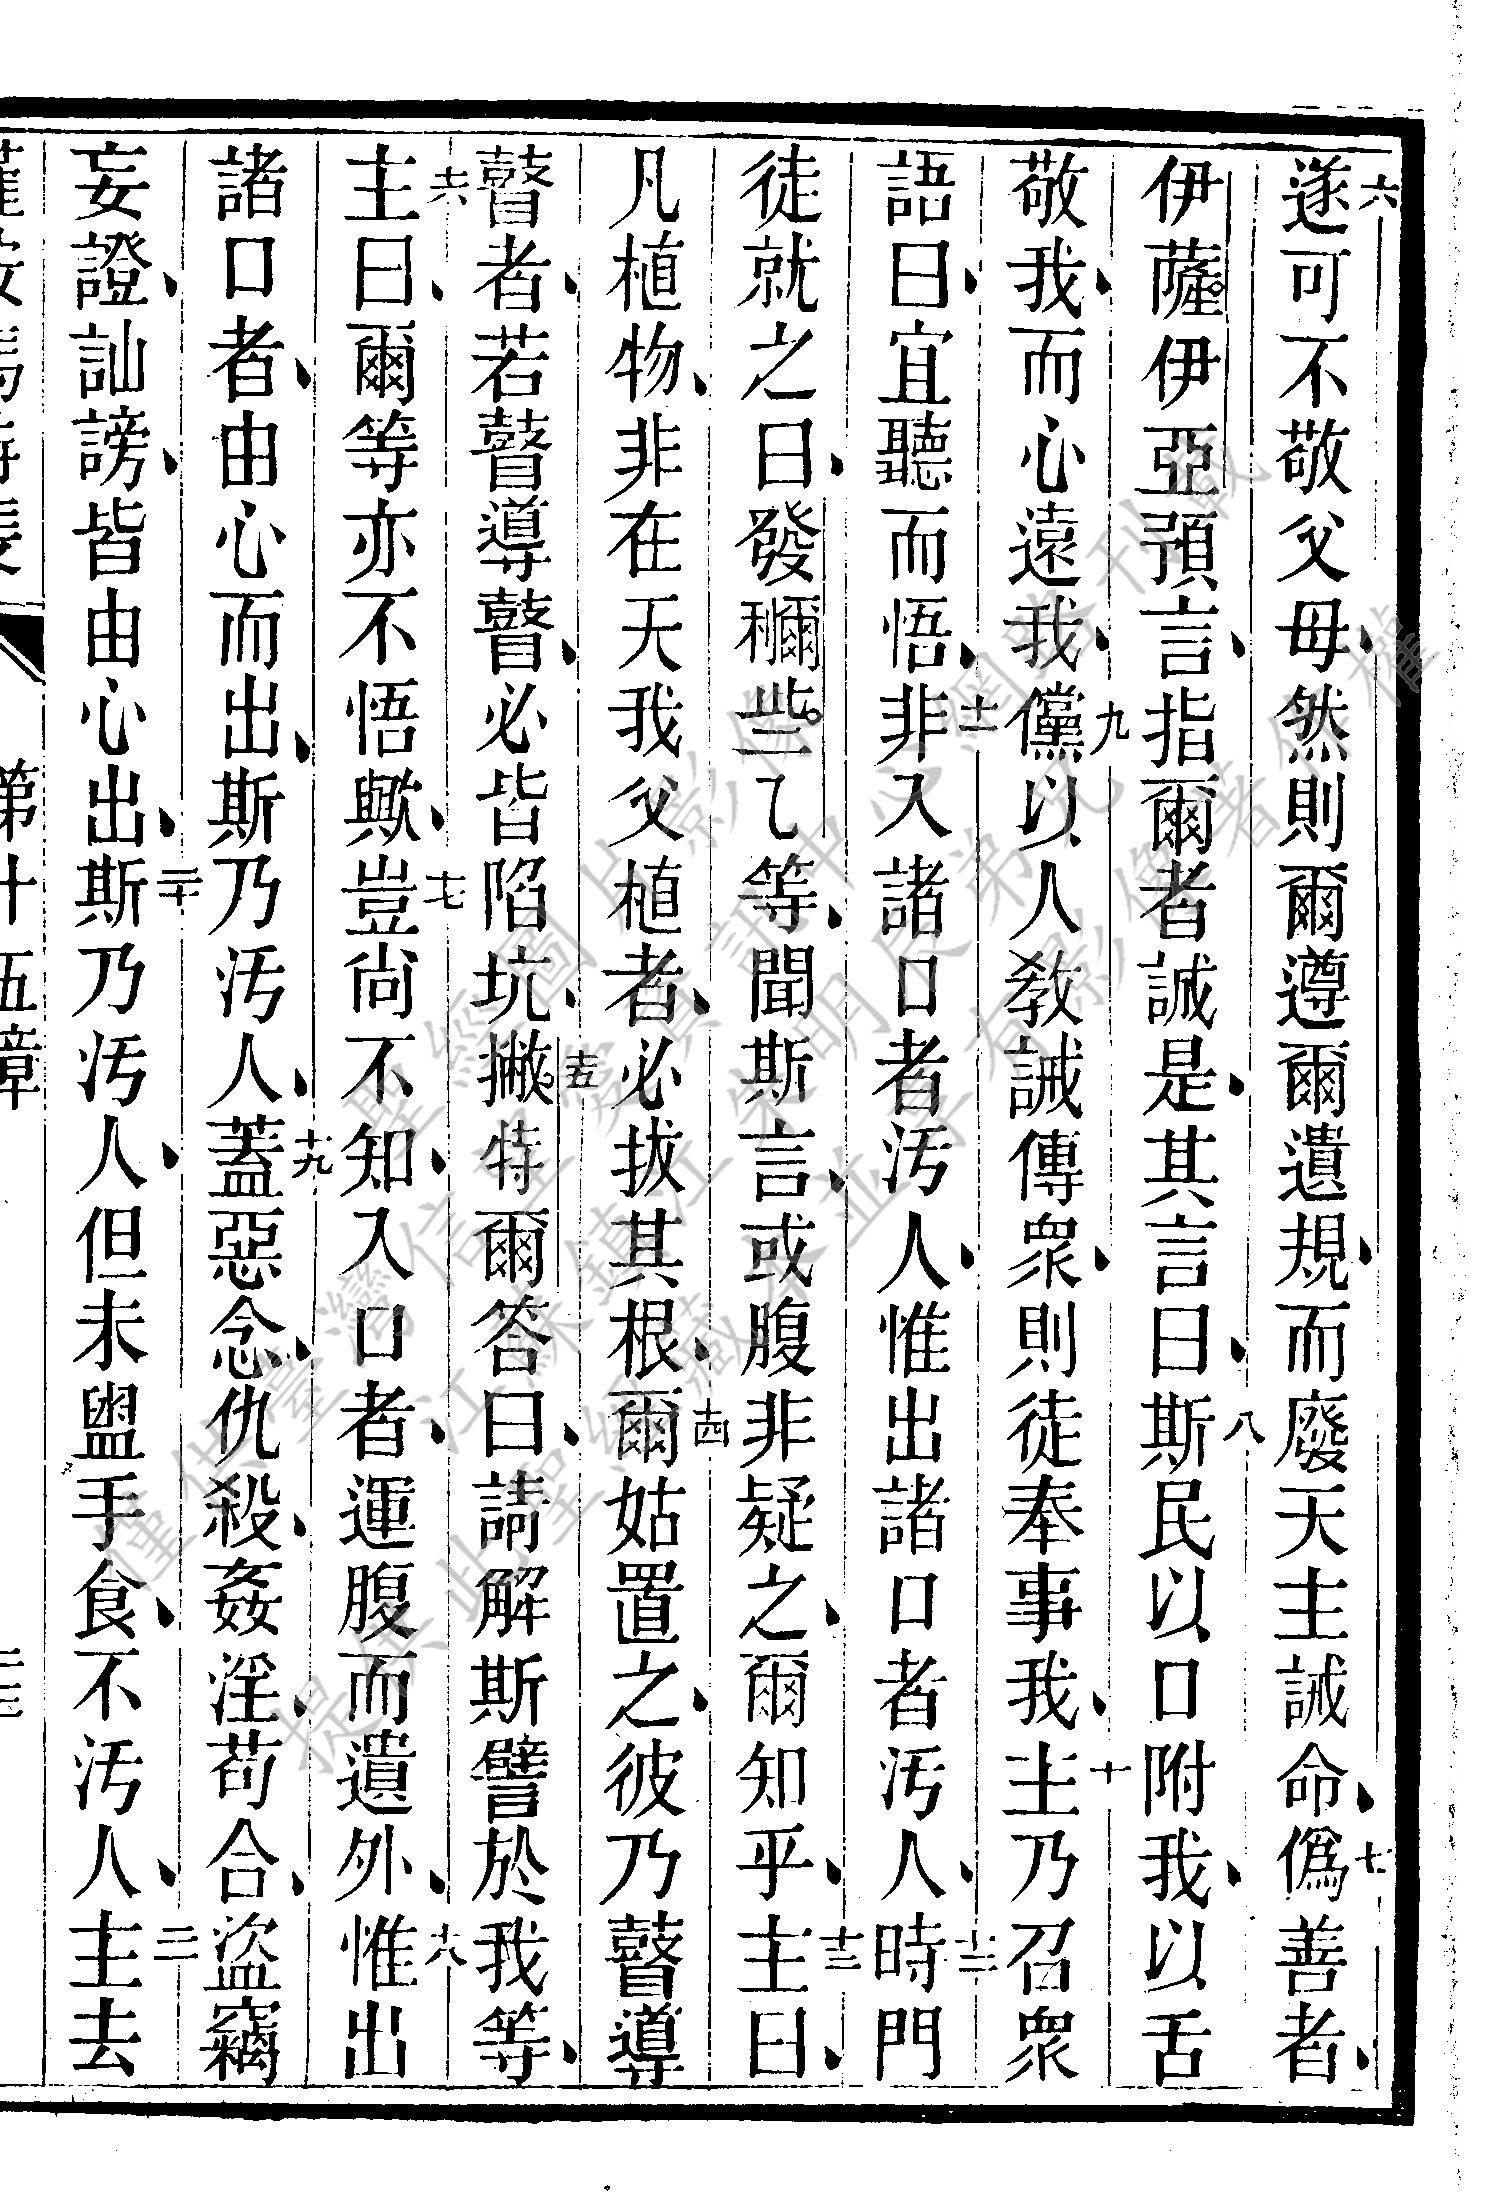 六遂可不敬父母、然則爾遵爾遺規、而廢天主誡命、七僞善者、
伊薩伊亞預言、指爾者誠是、其言曰、八斯民以口附我、以舌
敬我、而心遠我、九儻以人教誡傳衆、則徒奉事我、十主乃召衆
語曰、宜聽而悟、十一非入諸口者汚人、惟出諸口者汚人、十二時門
徒就之曰、發穪些乙等、聞斯言、或腹非疑之、爾知乎、十三主曰、
凡植物、非在天我父植者、必拔其根、十四爾姑置之、彼乃瞽導
瞽者、若瞽導瞽、必皆陷坑、十五撇特爾答曰、請解斯譬於我等、
十六主曰、爾等亦不悟歟、十七豈尙不知、入口者、運腹而遺外、十八惟出
諸口者、由心而出、斯乃汚人、十九蓋惡念、仇殺、姦淫、苟合、盜竊
妄證、訕謗、皆由心出、二十斯乃汚人、但未盥手食、不汚人、二一主去
第十五章